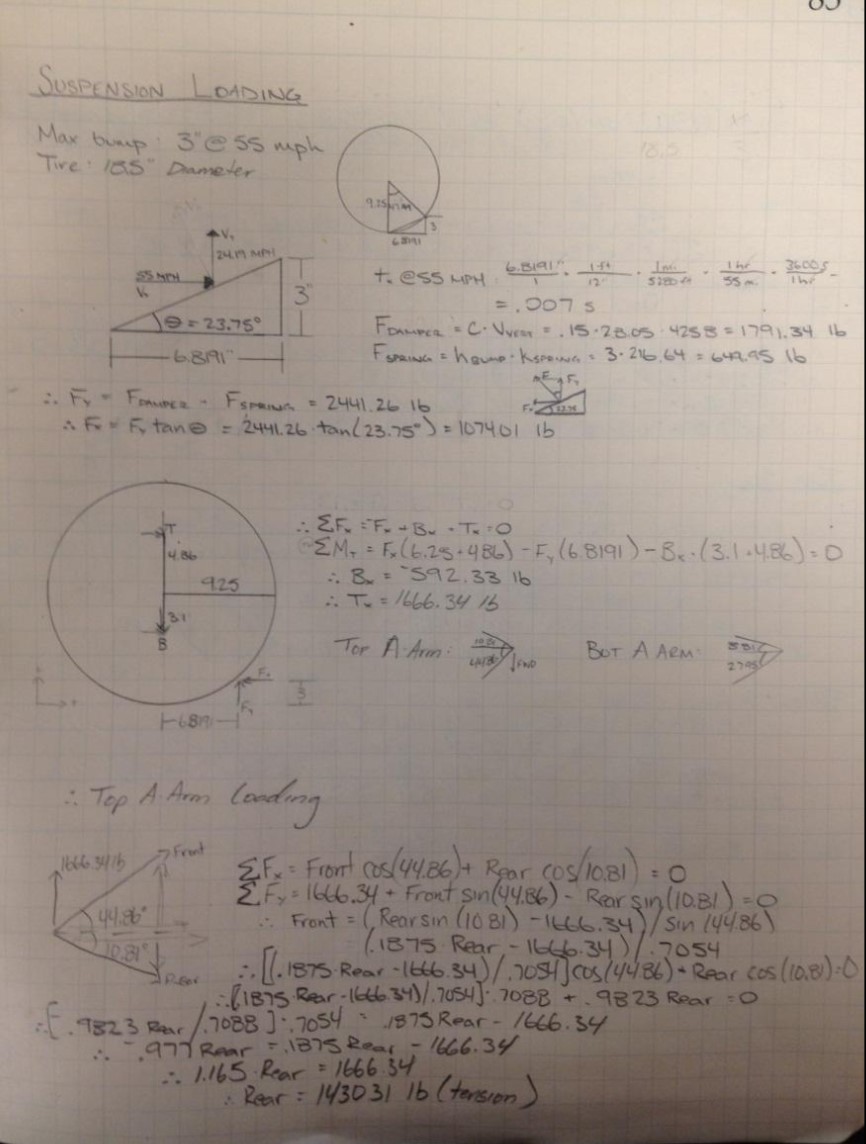 85
SUSPENSION LOADING
Max bump: 3" @ 55 mph
Tire: 18.5" Diameter
9.25
3
6.8191
Vy
24.19 MPH
55 MPH
Vx
3"
θ = 23.75°
6.8191"
t. @55 MPH: 6.8191"/1 · 1 ft/12" · 1mi/5280ft · 1hr/55m. · 3600s/1hr =
= .007 s
FDAMPER = C · VVERT = .15 · 28.05 · 425.8 = 1791.34 lb
FSPRING = hBUMP · KSPRING = 3 · 216.64 = 649.95 lb
∴ Fy = FDAMPER - FSPRING = 2441.26 lb
∴ Fx = Fy tanθ = 2441.26 · tan(23.75°) = 1074.01 lb
F Fy
Fx 23.75
T
4.86
9.25
3.1
B
Fx
Fy
3
6.8191
∴ ΣFx = Fx + Bx - Tx = 0
ΣMT = Fx(6.25+4.86) - Fy(6.8191) - Bx·(3.1+4.86) = 0
∴ Bx = -592.33 lb
∴ Tx = 1666.34 lb
TOP A-Arm: 10.81 44.86 FWD
BOT A ARM:
∴ Top A-Arm loading
1666.34 lb
Front
44.86°
10.81°
Rear
ΣFx = Front cos(44.86) + Rear cos(10.81) = 0
ΣFy = 1666.34 + Front sin(44.86) - Rear sin(10.81) = 0
∴ Front = (Rear sin(10.81) - 1666.34) / sin(44.86)
(.1875 Rear - 1666.34) / .7054
∴ [(.1875·Rear - 1666.34)/.7054] cos(44.86) + Rear cos(10.81) = 0
∴ [(.1875·Rear - 1666.34)/.7054] · .7088 + .9823 Rear = 0
∴ [-.9823 Rear/.7088] · .7054 = .1875 Rear - 1666.34
∴ -.977 Rear = .1875 Rear - 1666.34
∴ 1.165·Rear = 1666.34
∴ Rear = 1430.31 lb (tension)